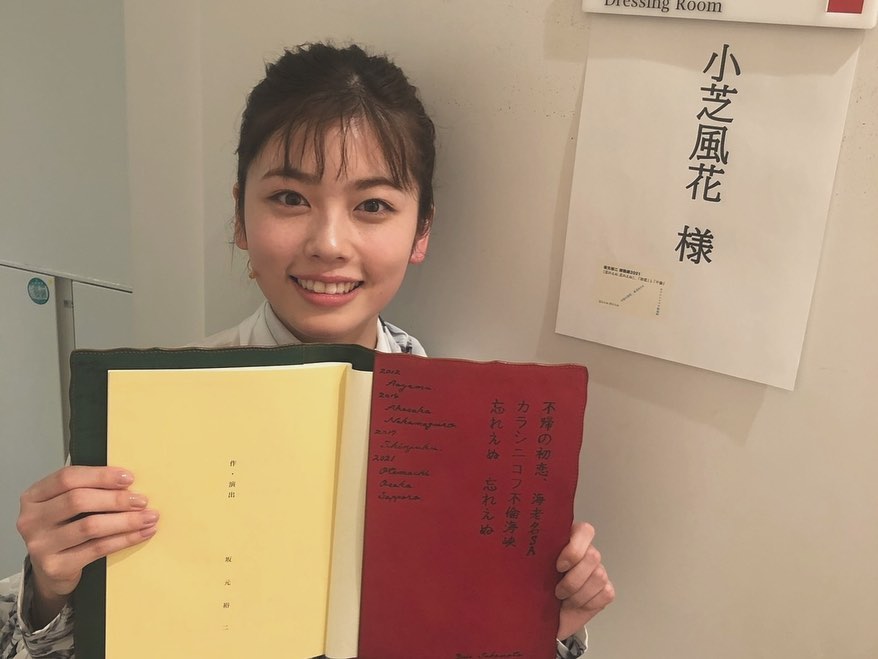 Dressing Room
小芝風花 様
不帰の初恋、海老名SA
カラシニコフ不倫海峡
忘れえぬ 忘れえぬ
2012
Aoyama
Akasaka
Nakameguro
Shinjuku
2021
Otemachi
Osaka
Sapporo
作・演出
坂元裕二
Yuji Sakamoto